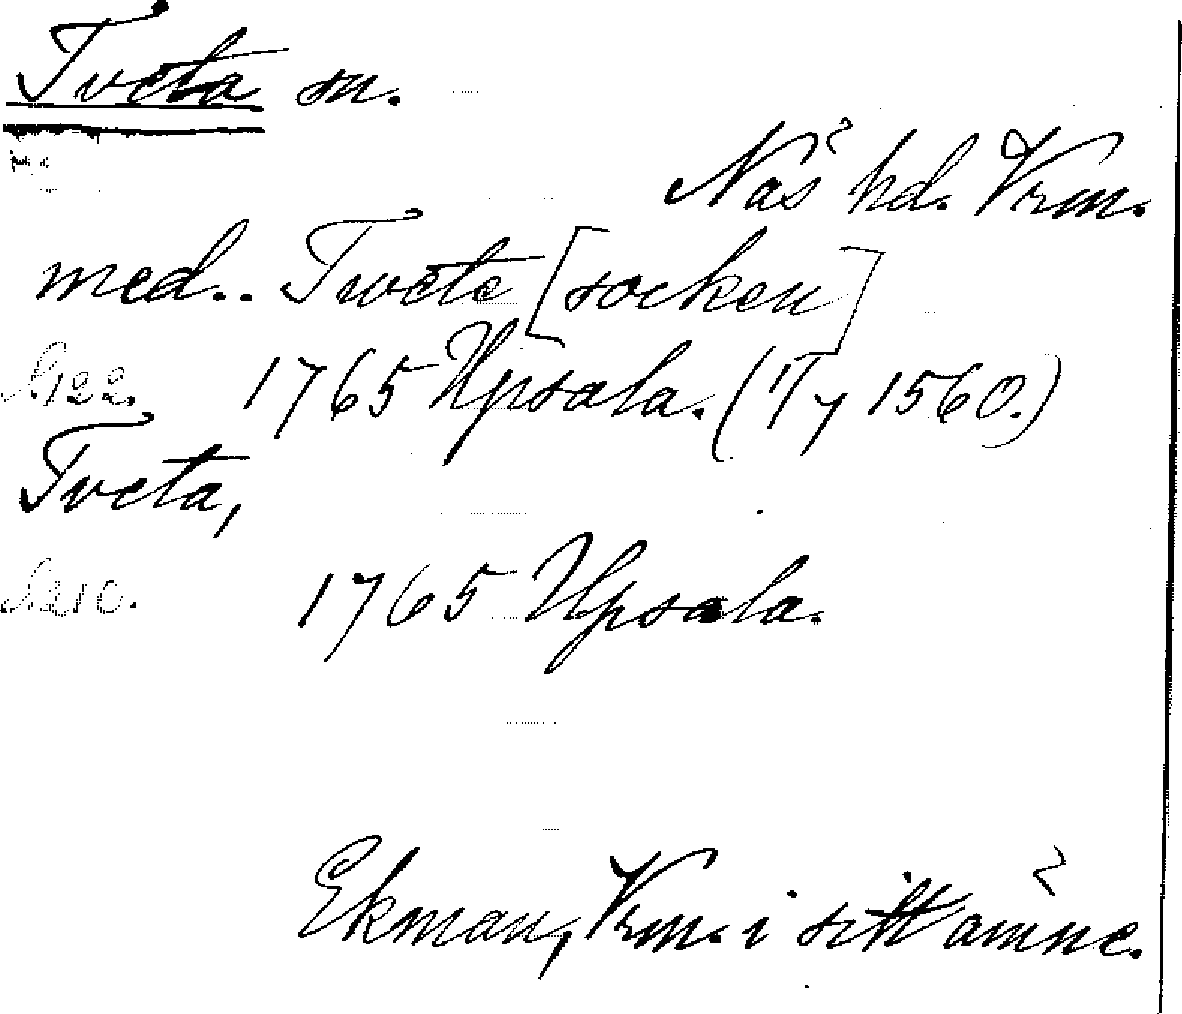 Tveta sn.
Näs hd. Vrm.
med.. Twete [socken]
S. 122. 1765 Upsala. (1/7 1560.)
Tveta,
S. 210. 1765 Upsala.
Ekman, Vrm. i sitt ämne.